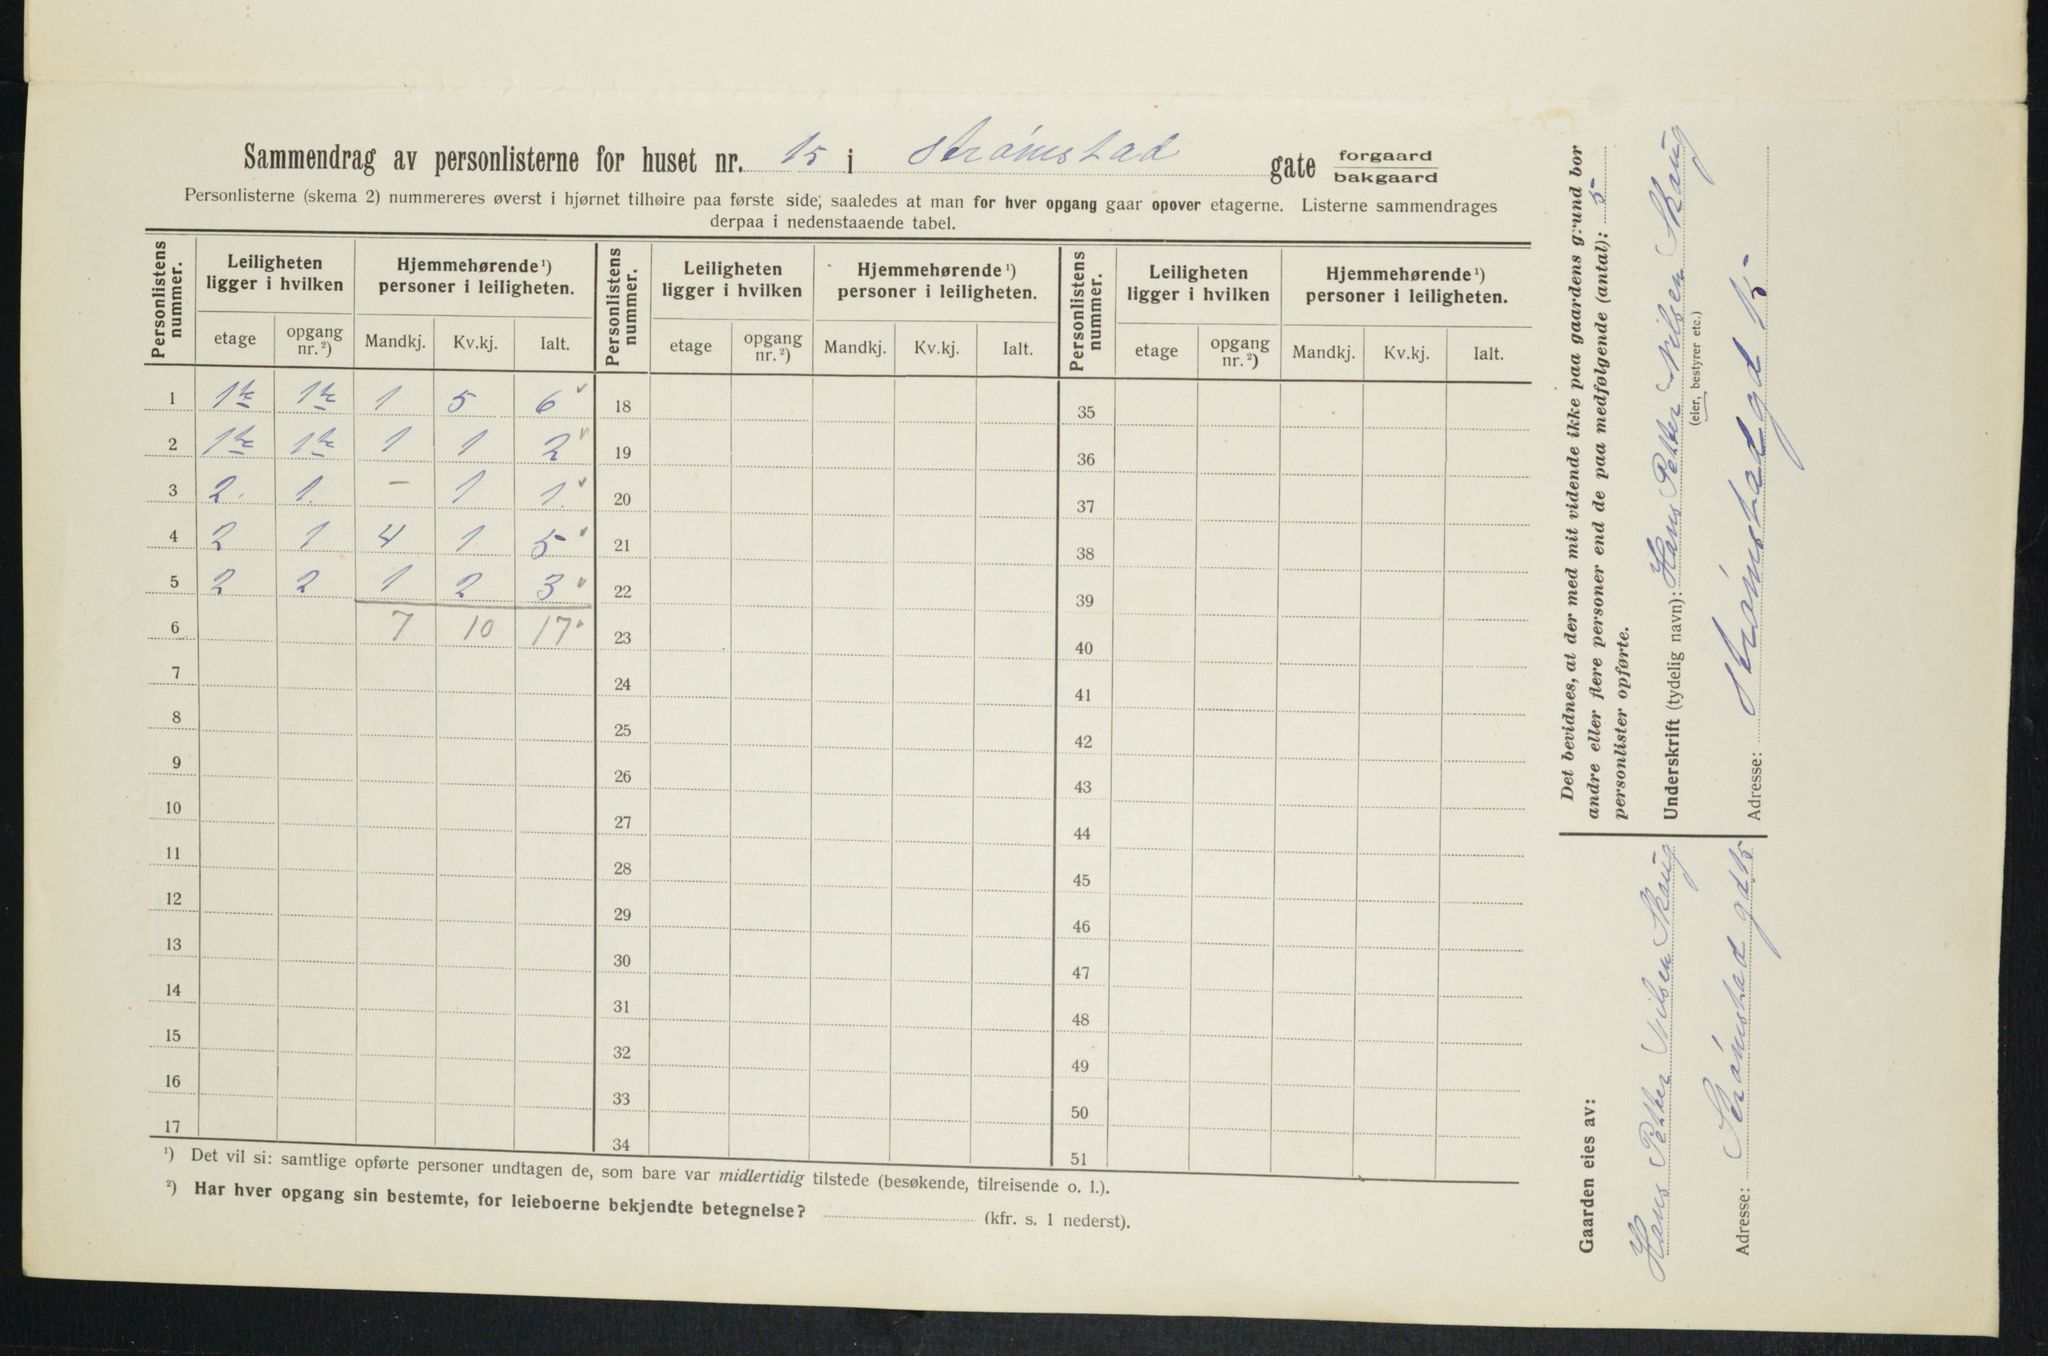 Sammendrag av personlisterne for huset nr. 15 i Strømstad gate forgaard bakgaard
Personlisterne (skema 2) nummereres øverst i hjørnet tilhøire paa første side; saaledes at man for hver opgang gaar opover etagerne. Listerne sammendrages
derpaa i nedenstaaende tabel.
Personlistens nummer. Leiligheten ligger i hvilken etage opgang nr. ²) Hjemmehørende ¹) personer i leiligheten. Mandkj. Kv.kj. Ialt.
Personlistens nummer. Leiligheten ligger i hvilken etage opgang nr. ²) Hjemmehørende ¹) personer i leiligheten. Mandkj. Kv.kj. Ialt.
Personlistens nummer. Leiligheten ligger i hvilken etage opgang nr. ²) Hjemmehørende ¹) personer i leiligheten. Mandkj. Kv.kj. Ialt.
1 1ste 1ste 1 5 6 18 35
2 1ste 1ste 1 1 2 19 36
3 2. 1. – 1 1. 20 37
4 2 1 4 1 5 21 38
5 2 2 1 2 3 22 39
6 7 10 17 23 40
7 24 41
8 25 42
9 26 43
10 27 44
11 28 45
12 29 46
13 30 47
14 31 48
15 32 49
16 33 50
17 34 51
¹) Det vil si: samtlige opførte personer undtagen de, som bare var midlertidig tilstede (besøkende, tilreisende o. l.).
²) Har hver opgang sin bestemte, for leieboerne bekjendte betegnelse? (kfr. s. 1 nederst).
Det bevidnes, at der med mit vidende ikke paa gaardens grund bor
andre eller flere personer end de paa medfølgende (antal): 5
personlister opførte.
Underskrift (tydelig navn): Hans Petter Nilsen Skaug
(eier, bestyrer etc.)
Adresse: Strømstad gd 15
Gaarden eies av:
Hans Petter Nilsen Skaug
Adresse: Strømstad gd 15